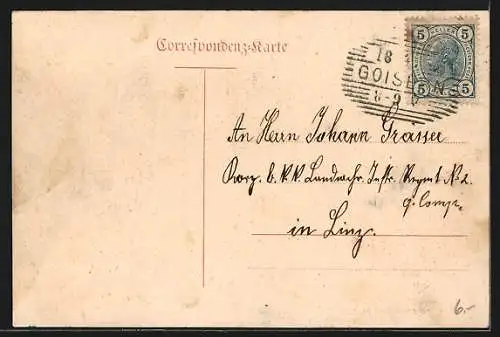 Correspondenz-Karte
5 5
18
GOIS
8-9
5 5
An Herrn Johann Grasser
Korp. b. k. k. Landwehr. Inftr. Regmt N. 2
9. Comp.
in Linz.
6.-